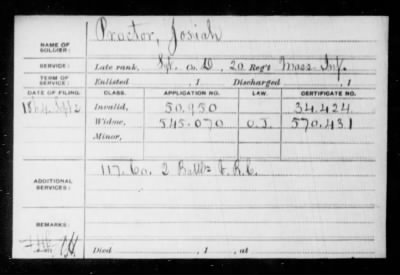 NAME OF SOLDIER: Proctor, Josiah
SERVICE: Late rank, Sgt. Co. D, 20 Reg't Mass Inf.
TERM OF SERVICE: Enlisted , 1 Discharged , 1
DATE OF FILING. CLASS. APPLICATION NO. LAW. CERTIFICATE NO.
1864 Invalid, 50.950 34.424
Widow, 545.070 570.431
Minor,
ADDITIONAL SERVICES: 117. Co. 2 Batt. V.R.C.
REMARKS:
Died , 1 , at